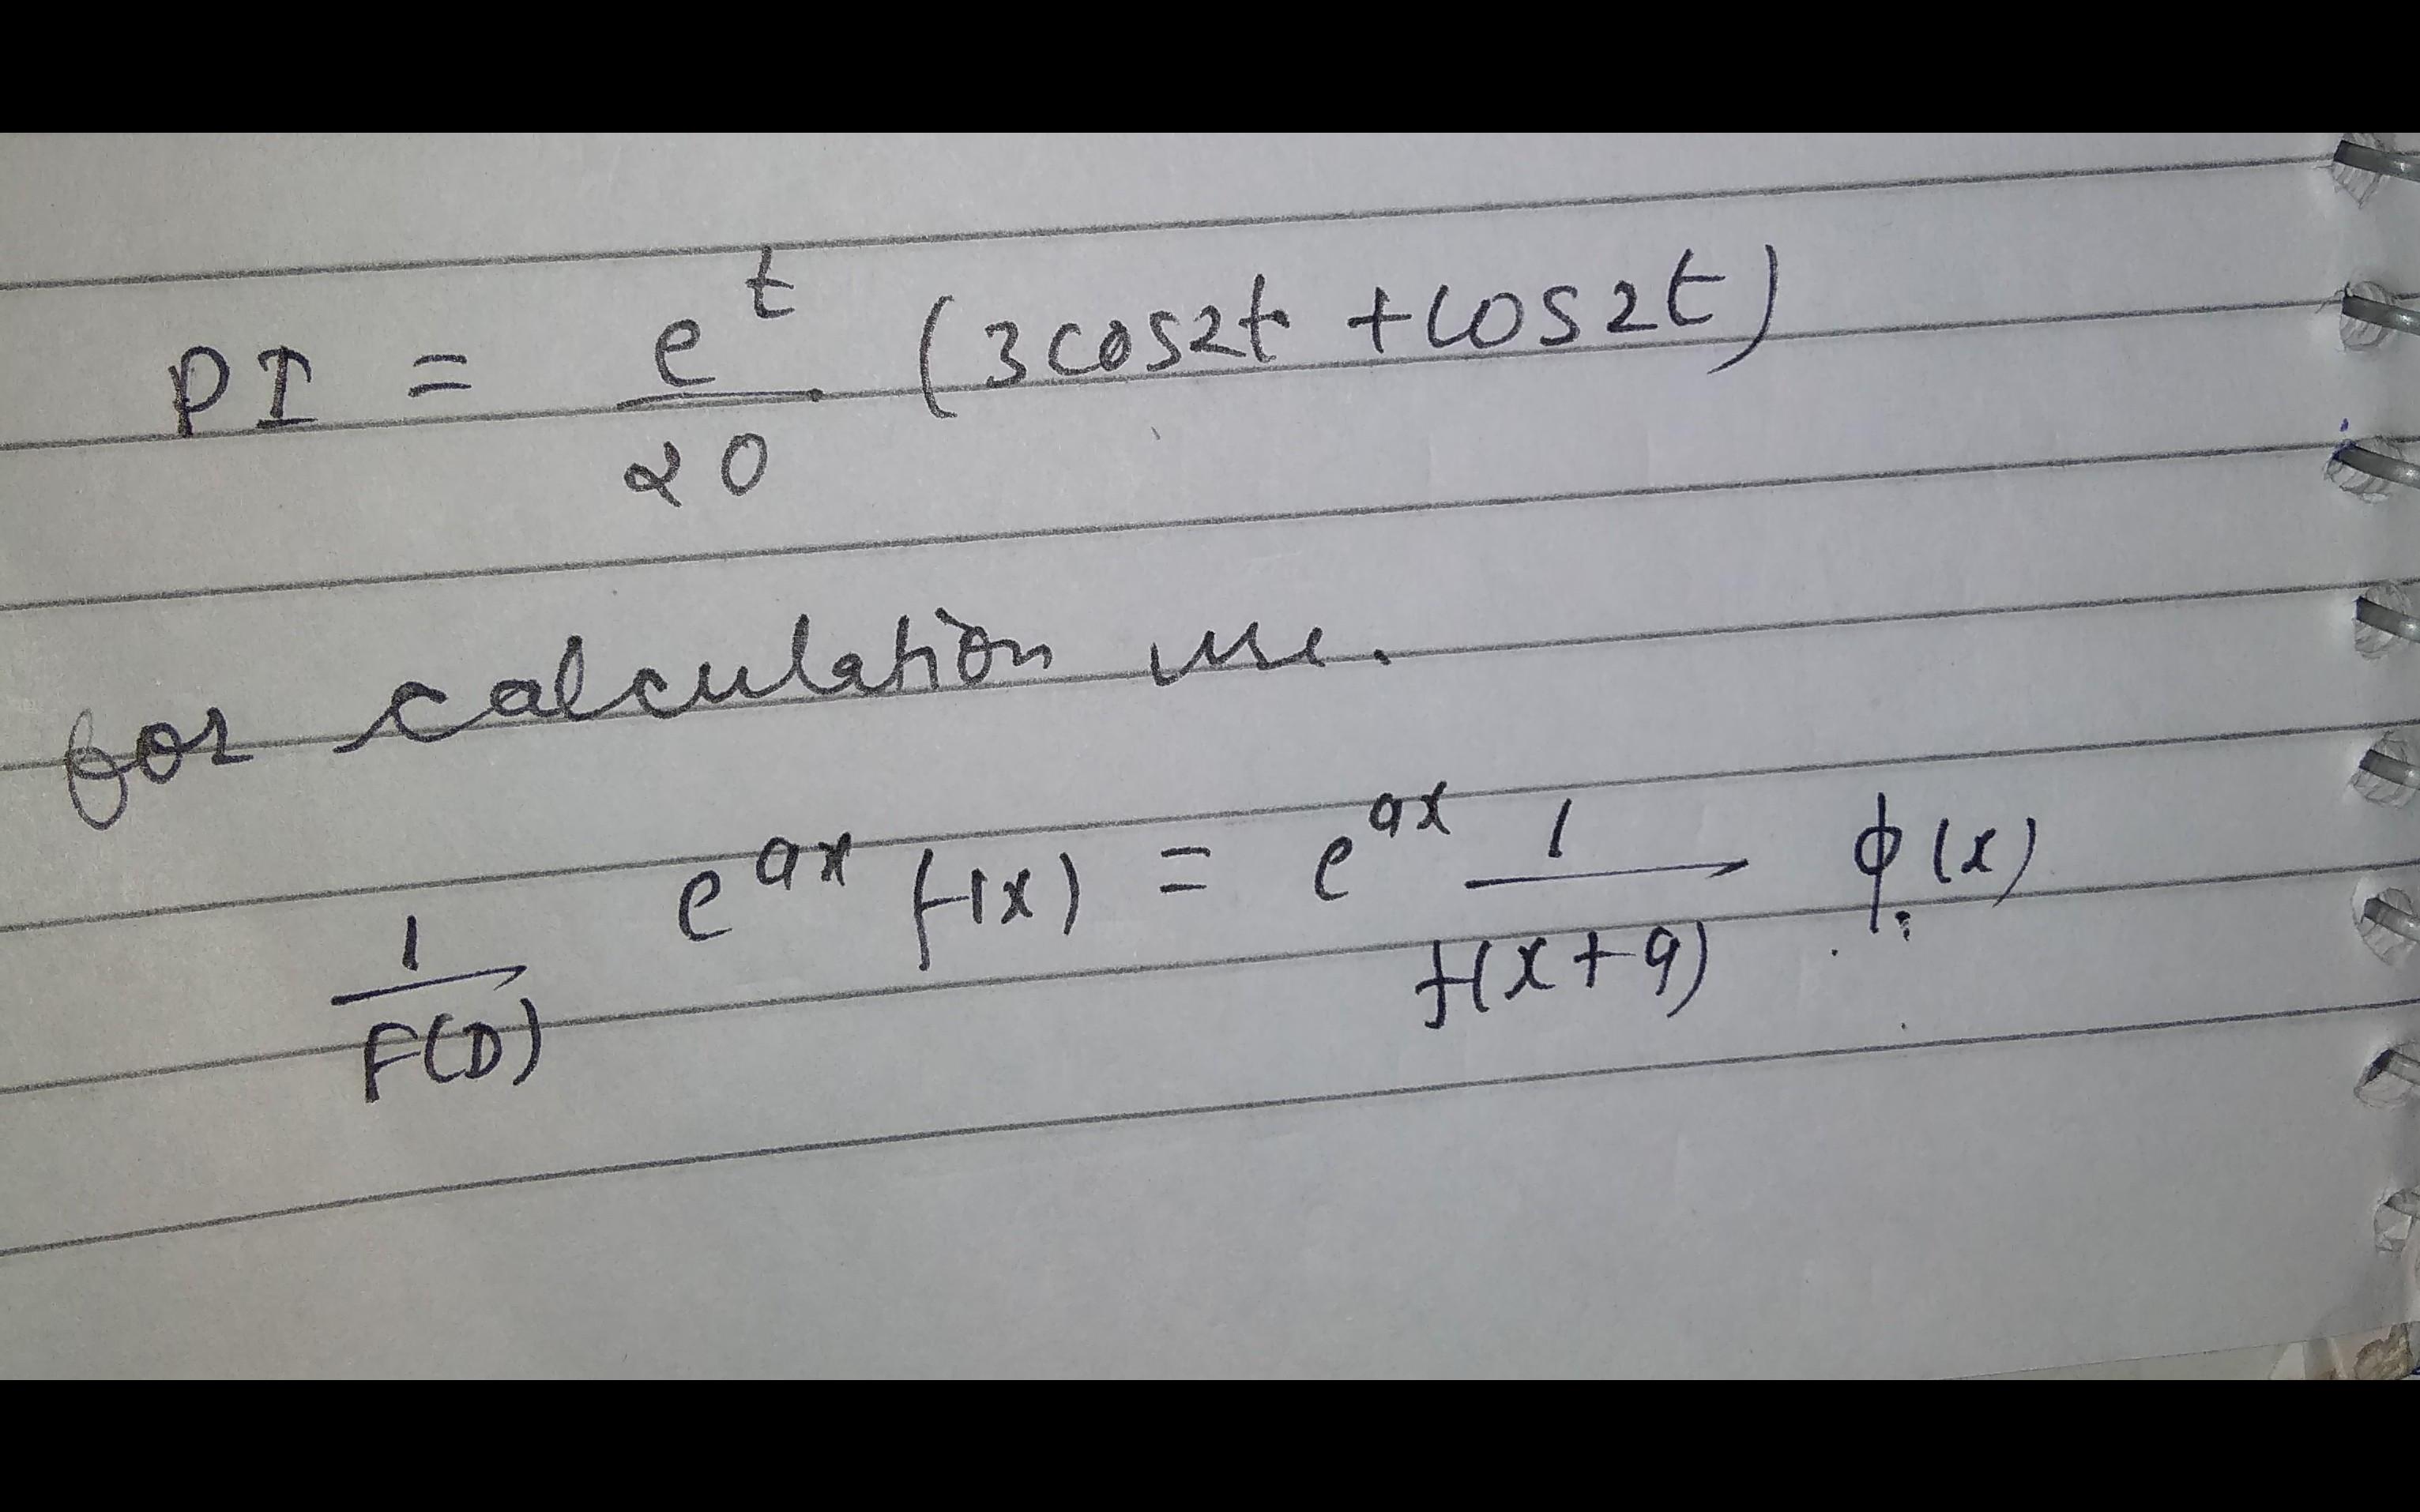 PI = e^t/20 (3cos2t + cos2t)
for calculation use.
1/F(D) e^ax f(x) = e^ax 1/f(x+a) ϕ(x)